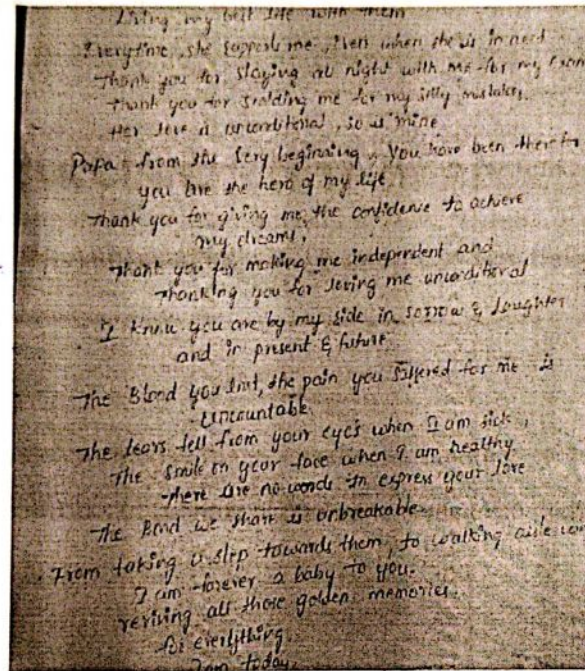 Living my best life with them
Everytime, she supports me, even when she is in need
Thank you for staying all night with me for my Exam
Thank you for scolding me for my silly mistakes.
Her love is unconditional, so is mine
Papa, from the very beginning, you have been there for
you are the hero of my life.
Thank you for giving me the confidence to achieve
my dreams,
Thank you for making me independent and
Thanking you for loving me unconditional
I know you are by my side in sorrow & laughter
and in present & future.
The Blood you lost, the pain you suffered for me is
Uncountable
The tears fell from your eyes when I am sick,
The smile on your face when I am healthy
There are no words to express your love
The Bond we share is unbreakable
From taking a step towards them, to walking aisle
I am forever a baby to you.
reviving all those golden memories.
for everything
I am today.